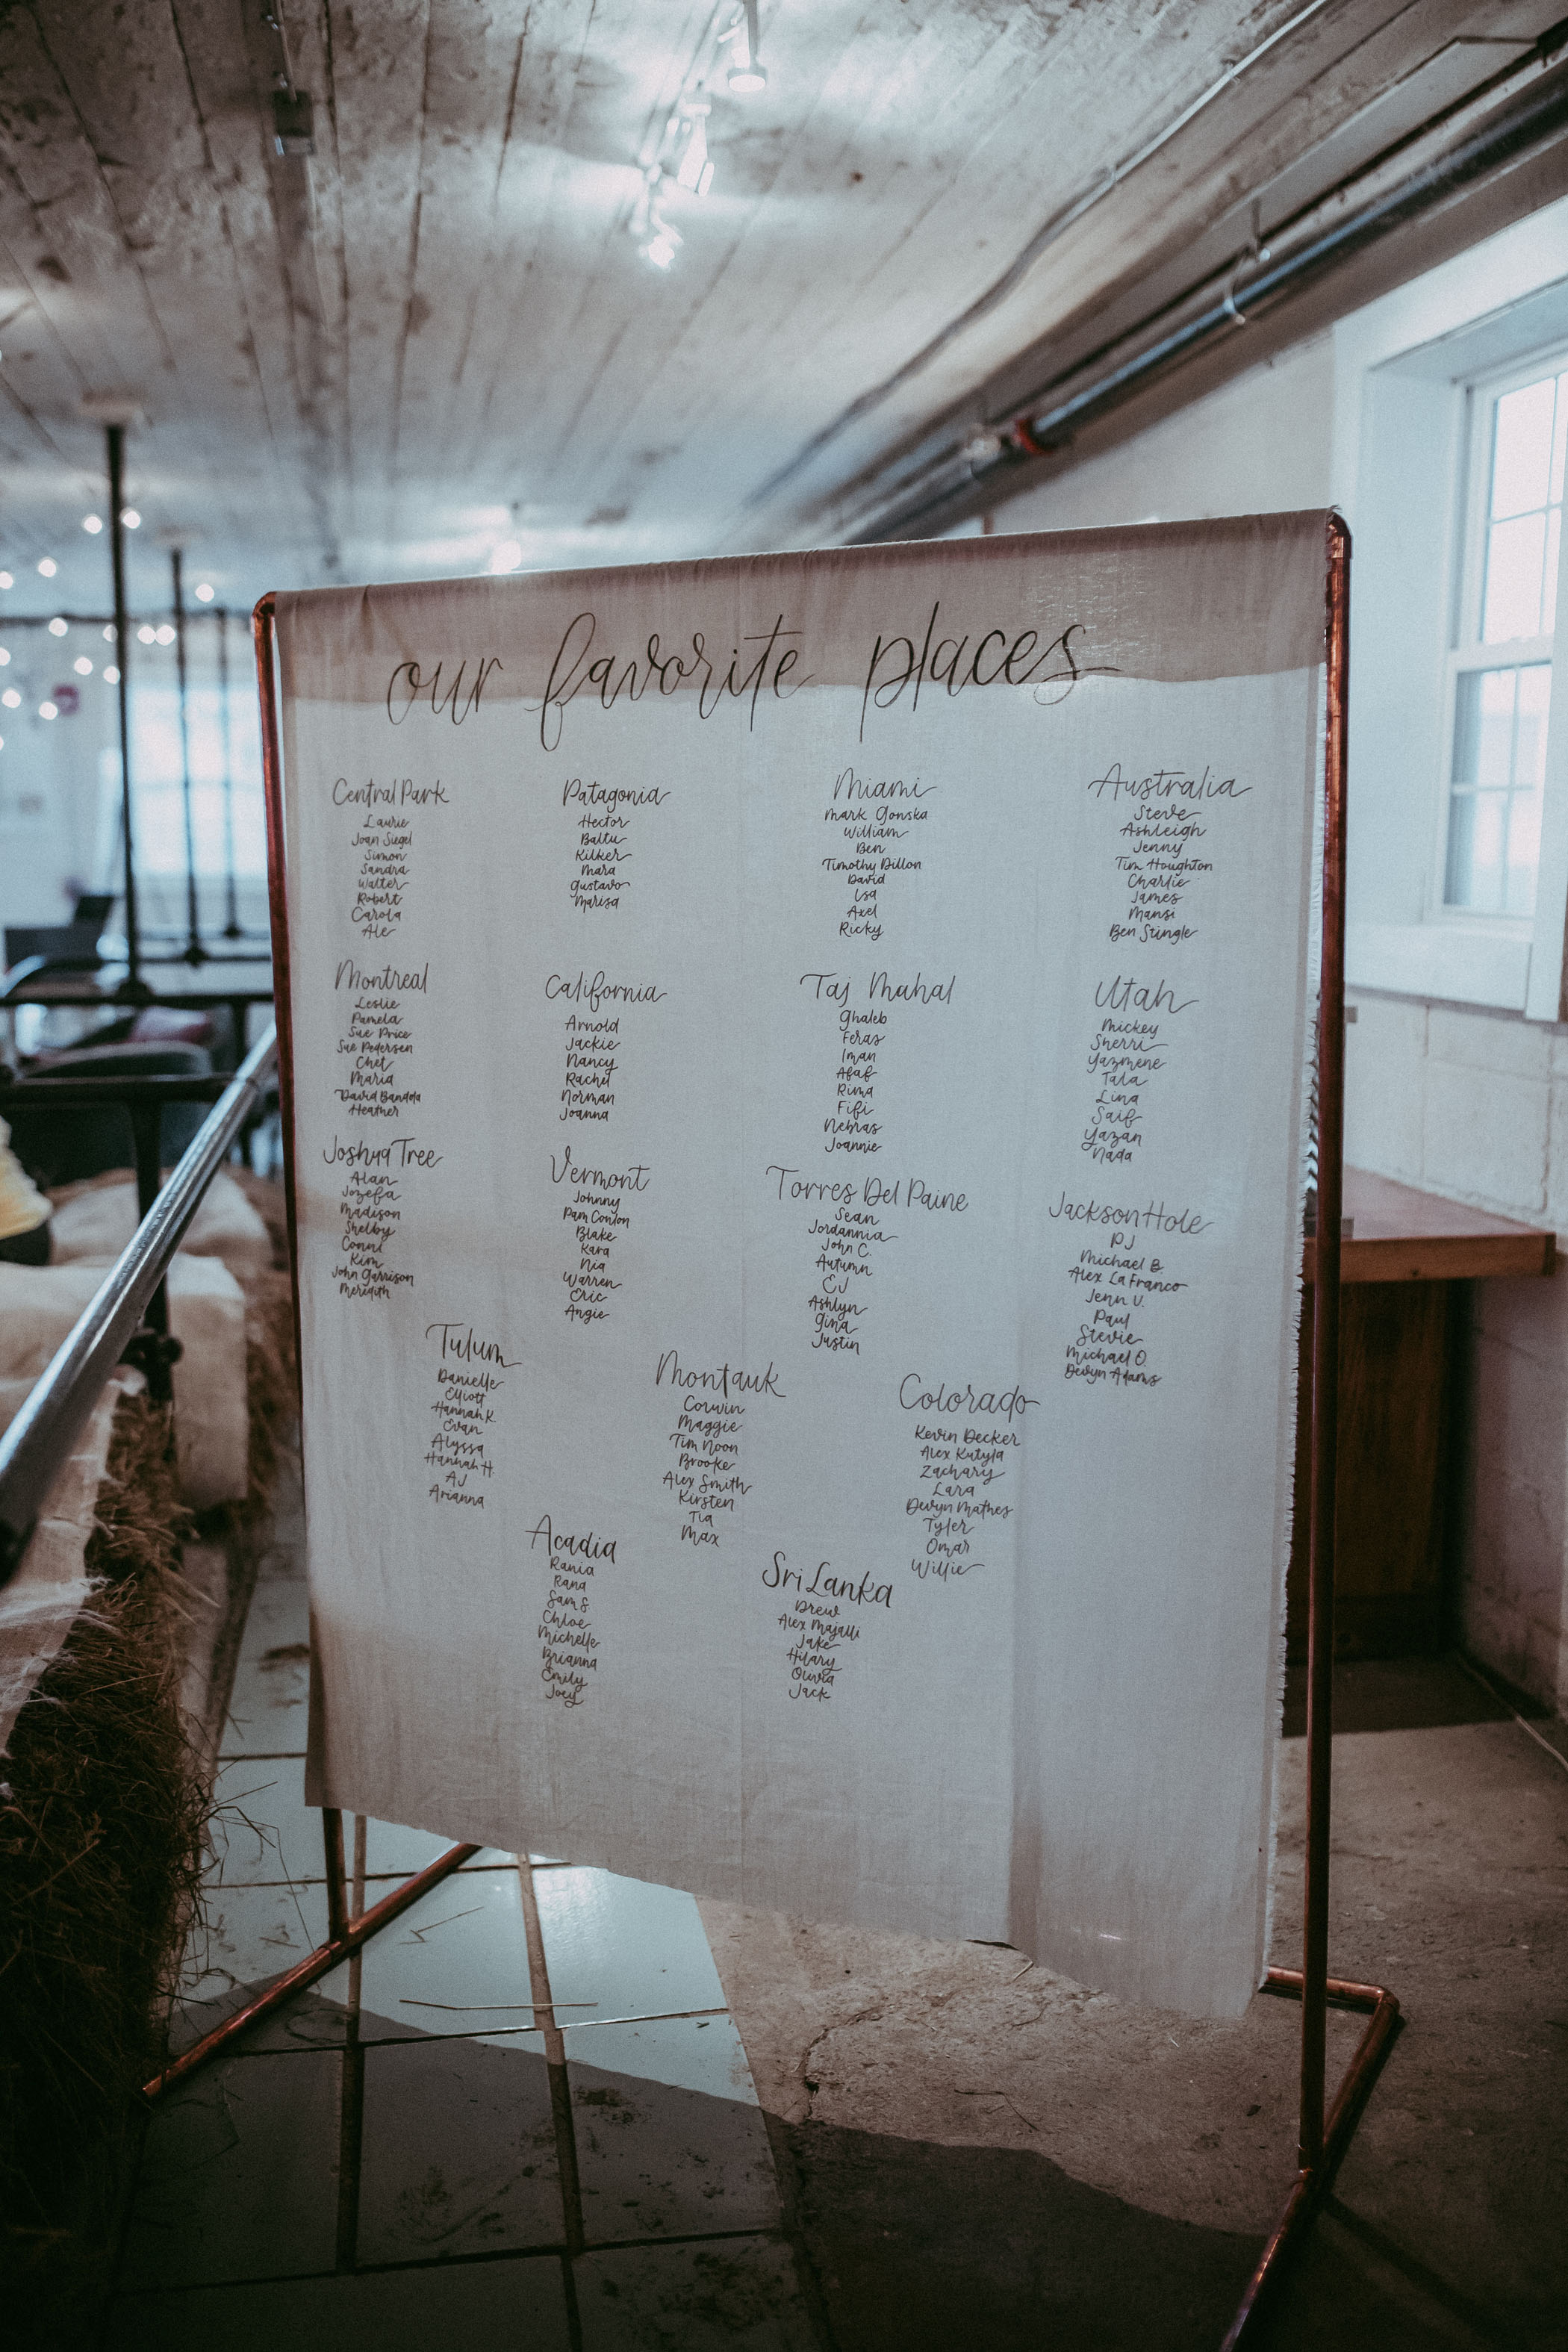 our favorite places
Central Park
Laurie
Joan Siegel
Simon
Sandra
Walter
Robert
Carola
Ale
Patagonia
Hector
Baltu
Kilker
Mara
Gustavo
Marisa
Miami
Mark Gonska
William
Ben
Timothy Dillon
David
Isa
Axel
Ricky
Australia
Steve
Ashleigh
Jenny
Tim Houghton
Charlie
James
Mansi
Ben Stingle
Montreal
Leslie
Pamela
Sue Price
Sue Pedersen
Chet
Maria
David Banada
Heather
California
Arnold
Jackie
Nancy
Rachel
Norman
Joanna
Taj Mahal
Ghaleb
Feras
Iman
Afaf
Rima
Fifi
Nebras
Joannie
Utah
Mickey
Sherri
Yazmene
Tala
Lina
Saif
Yazan
Nada
Joshua Tree
Alan
Jozefa
Madison
Shelby
Conni
Kim
John Garrison
Meridith
Vermont
Johnny
Pam Conlon
Blake
Kara
Nia
Warren
Eric
Angie
Torres Del Paine
Sean
Jordannia
John C.
Autumn
EJ
Ashlyn
Gina
Justin
Jackson Hole
PJ
Michael B
Alex LaFranco
Jenn V.
Paul
Stevie
Michael O.
Devyn Adams
Tulum
Danielle
Elliott
Hannah K
Evan
Alyssa
Hannah H.
AJ
Arianna
Montauk
Corwin
Maggie
Tim Noon
Brooke
Alex Smith
Kirsten
Tia
Max
Colorado
Kevin Decker
Alex Kutyla
Zachary
Lara
Devyn Mathes
Tyler
Omar
Willie
Acadia
Rania
Rana
Sam S
Chloe
Michelle
Brianna
Emily
Joey
Sri Lanka
Drew
Alex Majalli
Jake
Hilary
Olivia
Jack